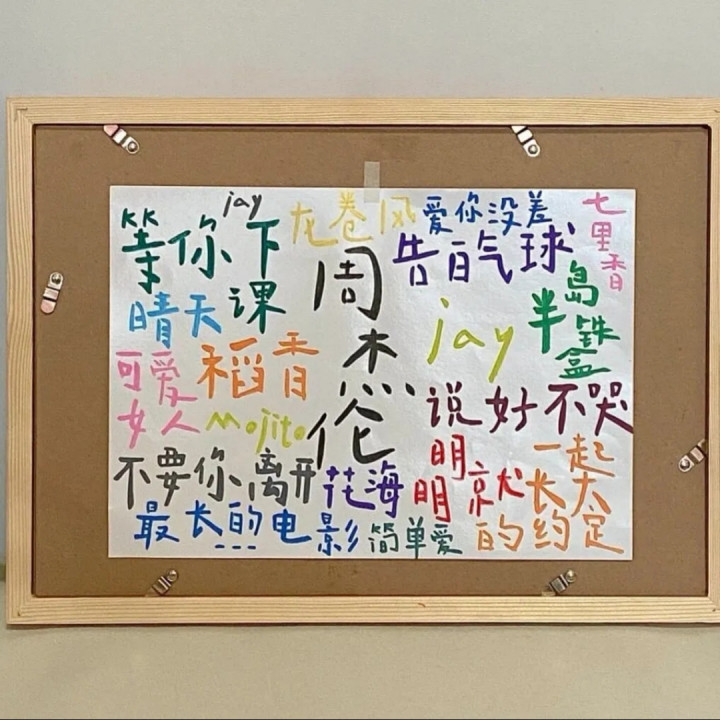 jay
龙卷风
爱你没差
七里香
等你下课
告白气球
周杰伦
晴天
jay
半岛铁盒
可爱女人
稻香
Mojito
说好不哭
不要你离开
花海
明明就
一起长大的约定
最长的电影
简单爱